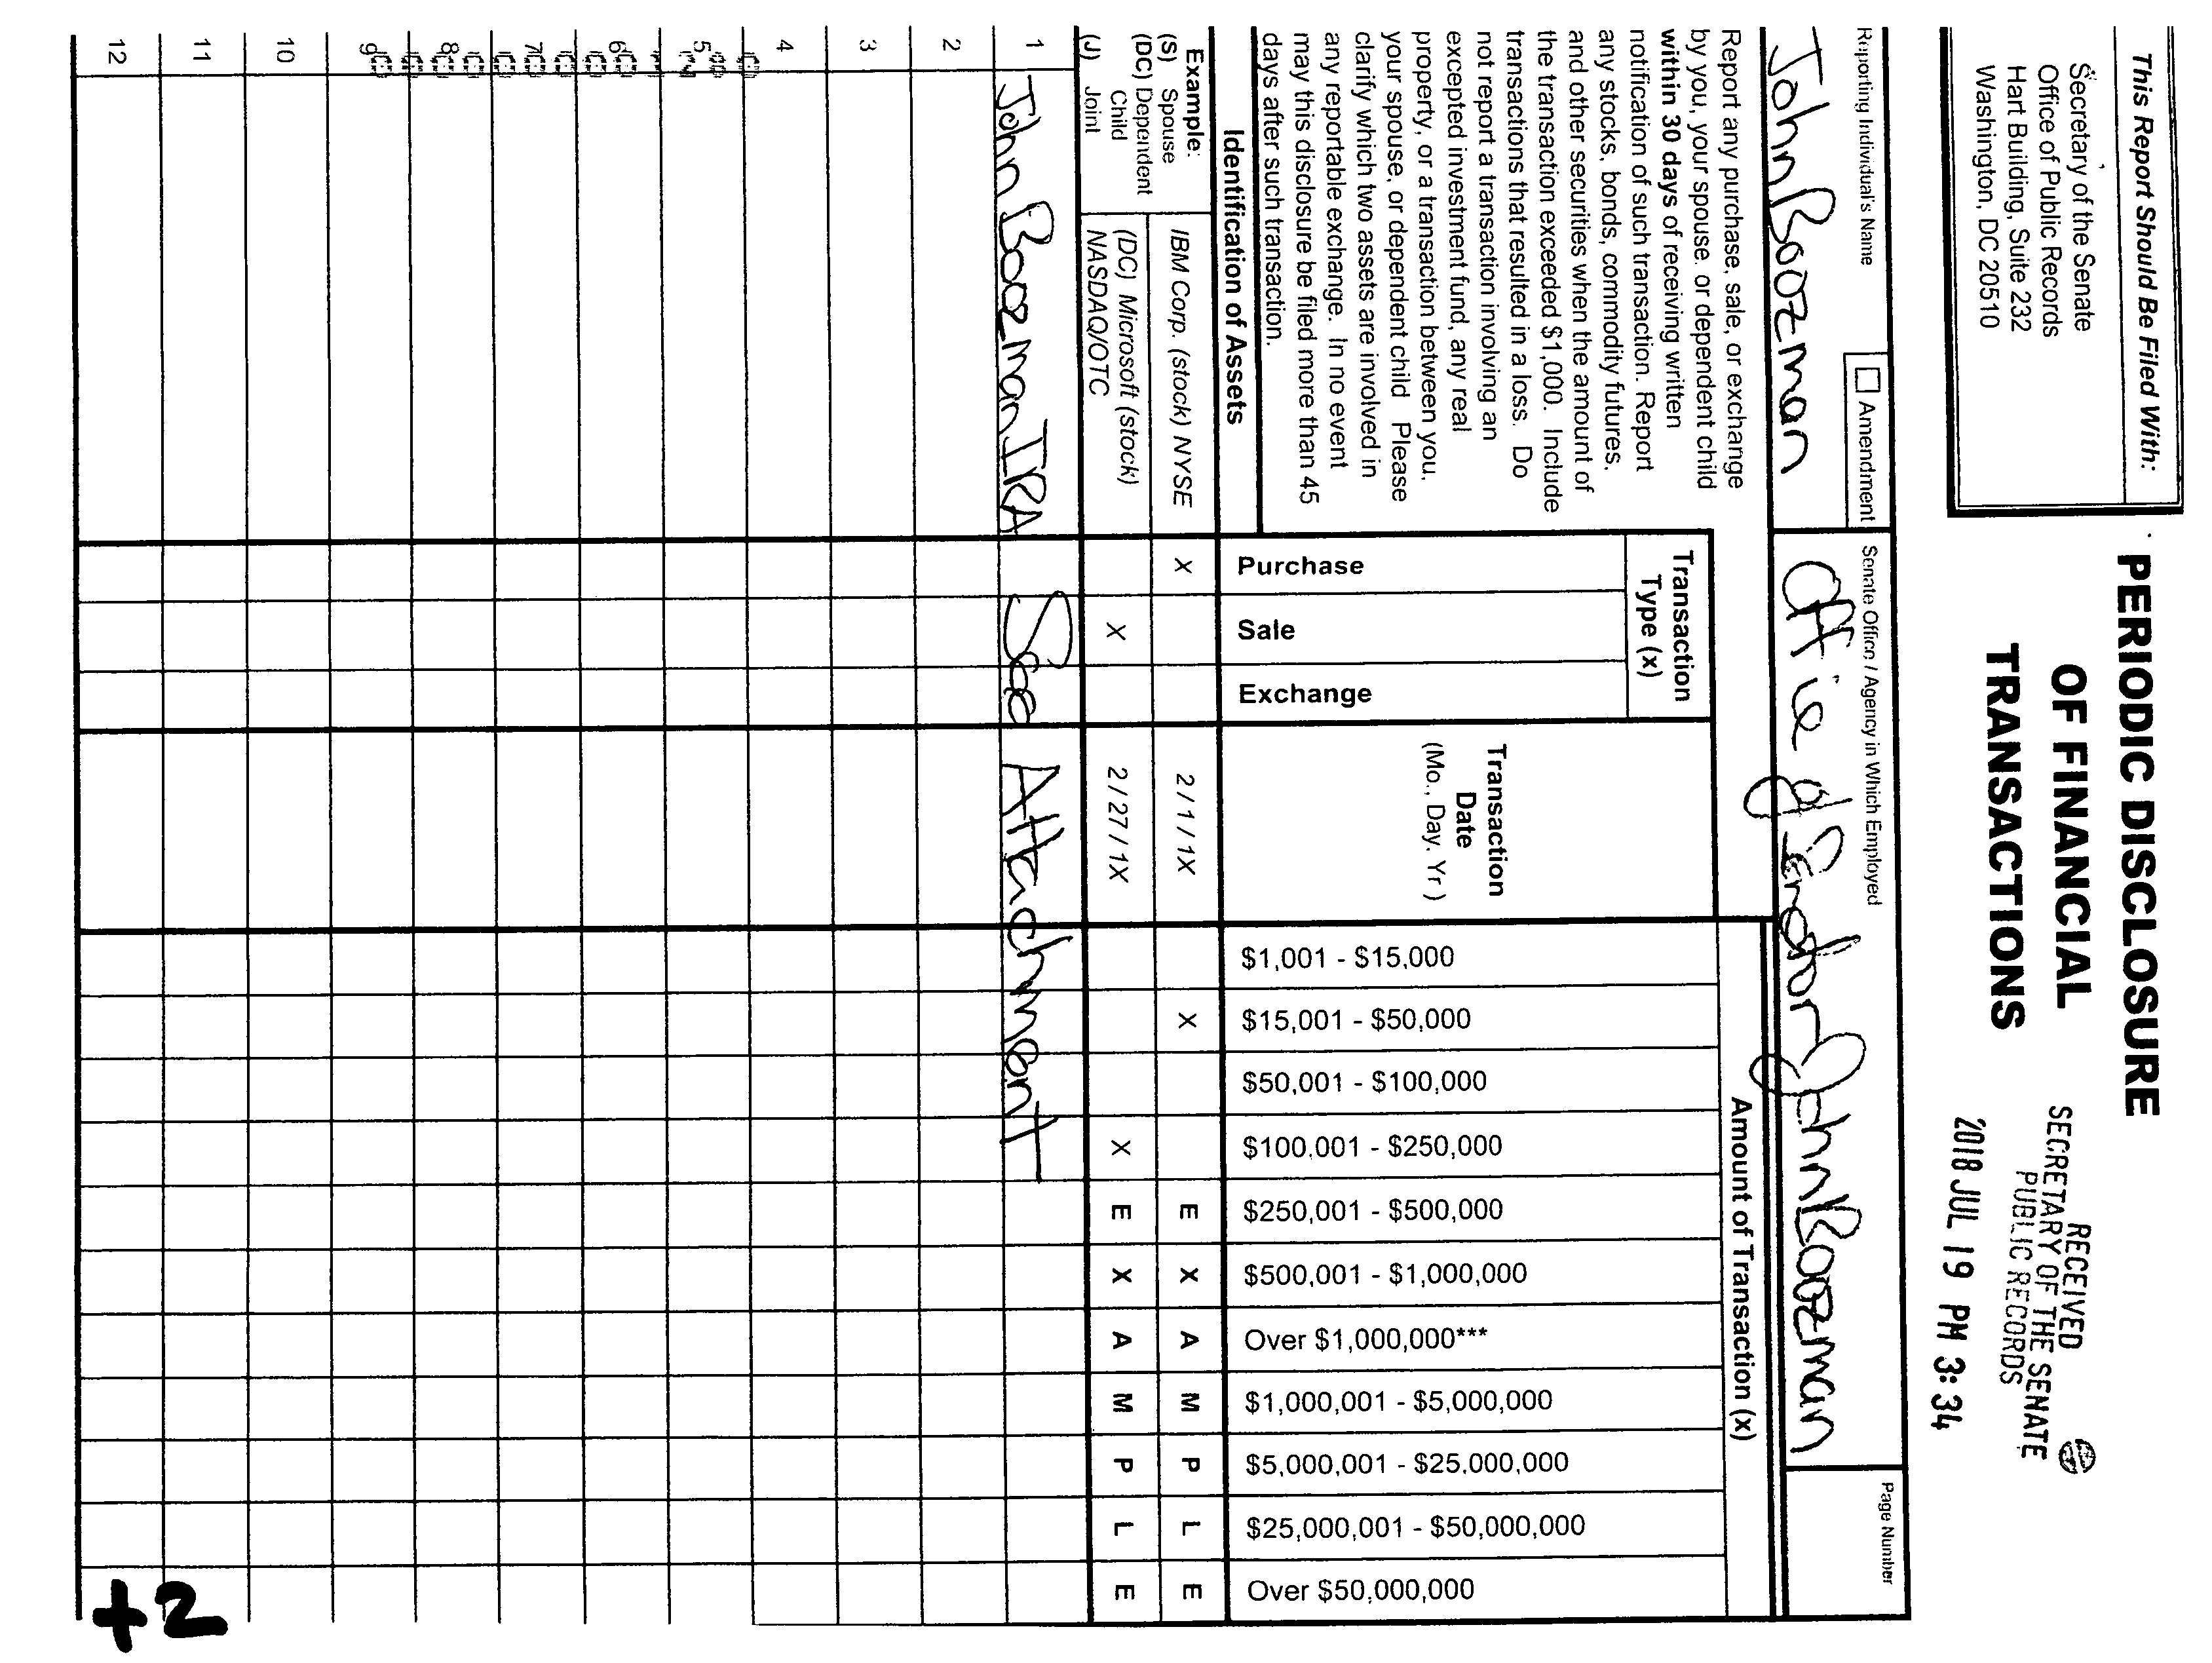 This Report Should Be Filed With:
Secretary of the Senate
Office of Public Records
Hart Building, Suite 232
Washington, DC 20510
PERIODIC DISCLOSURE
OF FINANCIAL
TRANSACTIONS
RECEIVED
SECRETARY OF THE SENATE
PUBLIC RECORDS
2018 JUL 19 PM 3:34
Reporting Individual's Name
Amendment
John Boozman
Senate Office / Agency in Which Employed
Office of Senator John Boozman
Page Number
Report any purchase, sale, or exchange
by you, your spouse, or dependent child
within 30 days of receiving written
notification of such transaction. Report
any stocks, bonds, commodity futures,
and other securities when the amount of
the transaction exceeded $1,000. Include
transactions that resulted in a loss. Do
not report a transaction involving an
excepted investment fund, any real
property, or a transaction between you,
your spouse, or dependent child Please
clarify which two assets are involved in
any reportable exchange. In no event
may this disclosure be filed more than 45
days after such transaction.
Identification of Assets
Transaction
Type (x)
Purchase
Sale
Exchange
Transaction
Date
(Mo., Day. Yr )
Amount of Transaction (x)
$1,001 - $15,000
$15,001 - $50,000
$50,001 - $100,000
$100,001 - $250,000
$250,001 - $500,000
$500,001 - $1,000,000
Over $1,000,000***
$1,000,001 - $5,000,000
$5,000,001 - $25,000,000
$25,000,001 - $50,000,000
Over $50,000,000
Example:
(S) Spouse
(DC) Dependent
Child
(J) Joint
IBM Corp. (stock) NYSE X 2 / 1 / 1X X E X A M P L E
(DC) Microsoft (stock)
NASDAQ/OTC X 2 / 27 / 1X X E X A M P L E
1 John Boozman IRA See Attachment
2
3
4
5
6
7
8
9
10
11
12
+2